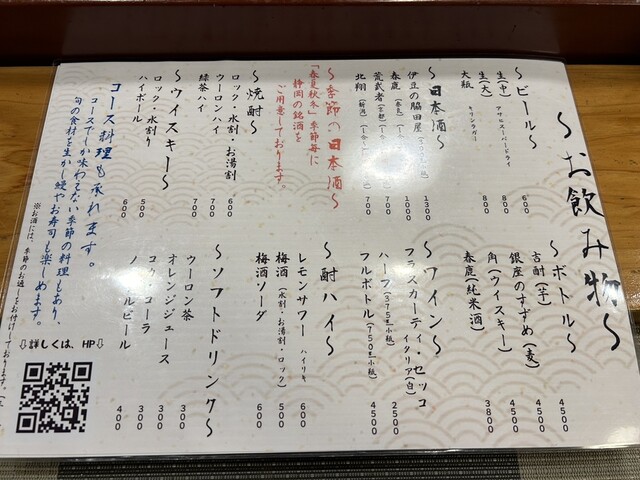 ～お飲み物～
～ビール～
生(中) アサヒスーパードライ 600
生(大) 800
大瓶 キリンラガー 800
～日本酒～
伊豆の脇田屋 1300
春鹿 1000
荒武者 700
北翔 700
～季節の日本酒～
「春夏秋冬」季節毎に
静岡の銘酒を
ご用意しております。
～焼酎～
ロック・水割・お湯割 600
ウーロンハイ 700
緑茶ハイ 700
～ウイスキー～
ロック・水割り 500
ハイボール 600
コース料理も承れます。
コースでしか味わえない季節の料理もあり、
旬の食材を生かし鰻やお寿司も楽しめます。
～ボトル～
古酎(芋) 4500
銀座のすずめ(麦) 4500
角(ウイスキー) 4500
春鹿純米酒) 3800
～ワイン～
フラスカーティ・セッコ
イタリア(白)
ハーフ(375ml小瓶) 2500
フルボトル(750ml小瓶) 4500
～酎ハイ～
レモンサワー ハイリキ 600
梅酒(水割・お湯割・ロック) 500
梅酒ソーダ 600
～ソフトドリンク～
ウーロン茶 300
オレンジジュース 300
コカ・コーラ 300
ノンアルビール 400
※お酒には、季節のお通しをお付けしております。
⇩詳しくは、HP⇩